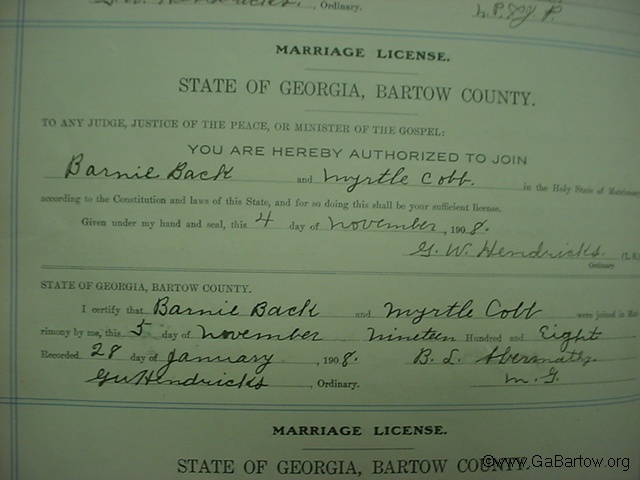 G. W. Hendricks, Ordinary. L.P.& J. P.
MARRIAGE LICENSE.
STATE OF GEORGIA, BARTOW COUNTY.
TO ANY JUDGE, JUSTICE OF THE PEACE, OR MINISTER OF THE GOSPEL:
YOU ARE HEREBY AUTHORIZED TO JOIN
Barnie Back and Myrtle Cobb. in the Holy State of Matrimony
according to the Constitution and laws of this State, and for so doing this shall be your sufficient license.
Given under my hand and seal, this 4 day of November, 1908.
G. W. Hendricks. (L.S.
Ordinary
STATE OF GEORGIA, BARTOW COUNTY.
I certify that Barnie Back and Myrtle Cobb were joined in Mat-
rimony by me, this 5 day of November Nineteen Hundred and Eight
Recorded 28 day of January, 1908. B. L. Abernathy.
GW Hendricks, Ordinary. M. G.
MARRIAGE LICENSE.
STATE OF GEORGIA, BARTOW COUNTY.
©www.GaBartow.org